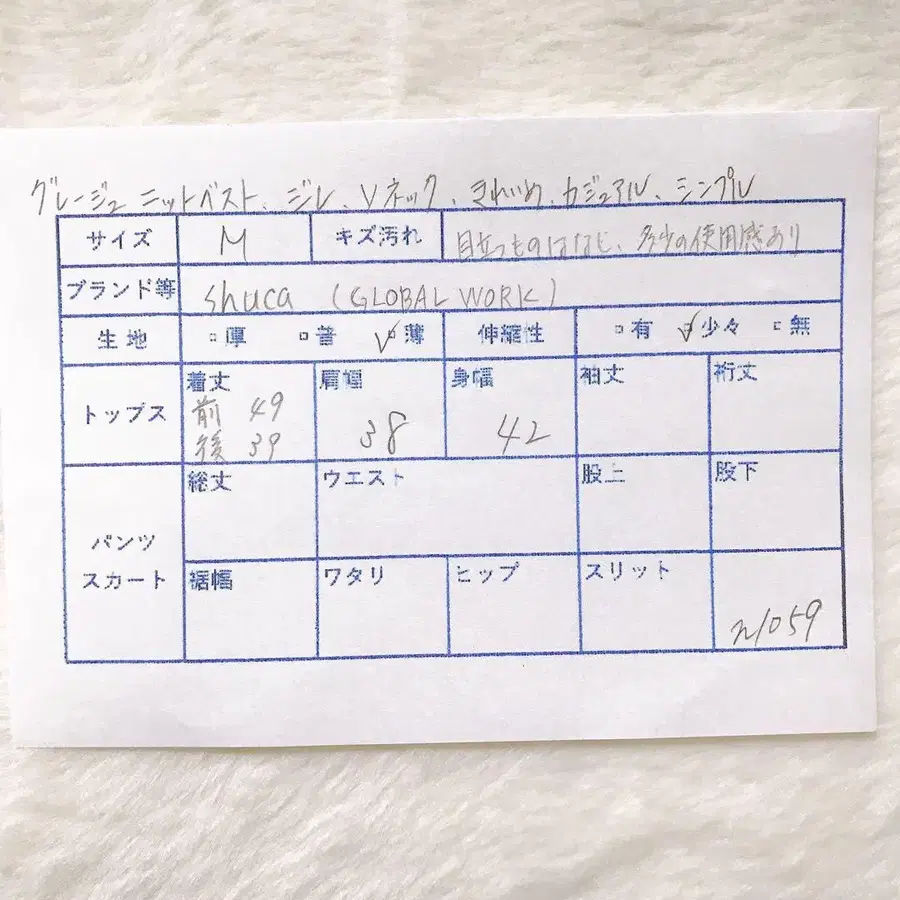 グレージュ ニットベスト、ジレ、Vネック、きれいめ、カジュアル、シンプル
サイズ M キズ汚れ 目立つものはなし、多少の使用感あり
ブランド等 shuca (GLOBAL WORK)
生地 □厚 □普 ☑薄 伸縮性 □有 ☑少々 □無
トップス 着丈 前 49 後 39 肩幅 38 身幅 42 袖丈 裄丈
パンツ スカート 総丈 ウエスト 股上 股下
裾幅 ワタリ ヒップ スリット n1059